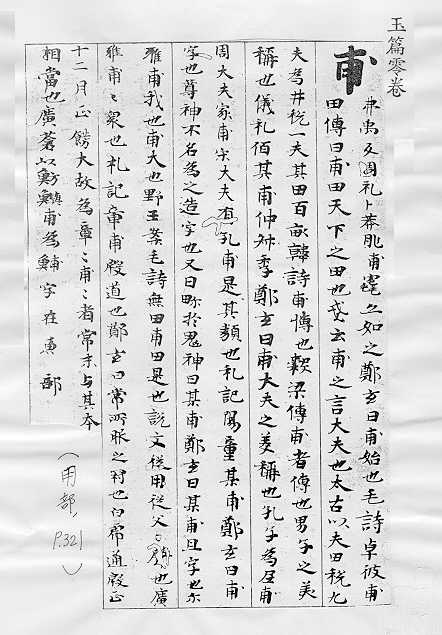 玉篇零卷
甫 弗禹反周礼卜葬兆甫竁亦如之鄭玄曰甫始也毛詩倬彼甫
田傳曰甫田天下之田也戔云甫之言大夫也太古以夫田稅九
夫爲井稅一夫其田百畝韓詩甫博也穀梁傳甫者傅也男子之美
稱也儀礼伯某甫仲叔季鄭玄曰甫大夫之美稱也孔子爲尼甫
周大夫家甫宋大夫孔甫是其類也礼記陽童某甫鄭玄曰甫
字也尊神不名爲之造字也又曰畛於鬼神曰某甫鄭玄曰某甫且字也尔
雅甫我也甫大也野王案毛詩無田甫田是也說文從用從父也廣
雅甫〻衆也礼記章甫殷道也鄭玄曰常所服之冠也白虎通殷以
十二月正飾大故爲章〻甫〻者常未与其本
相當也廣蒼以甫爲字在部
（用部，P.321）